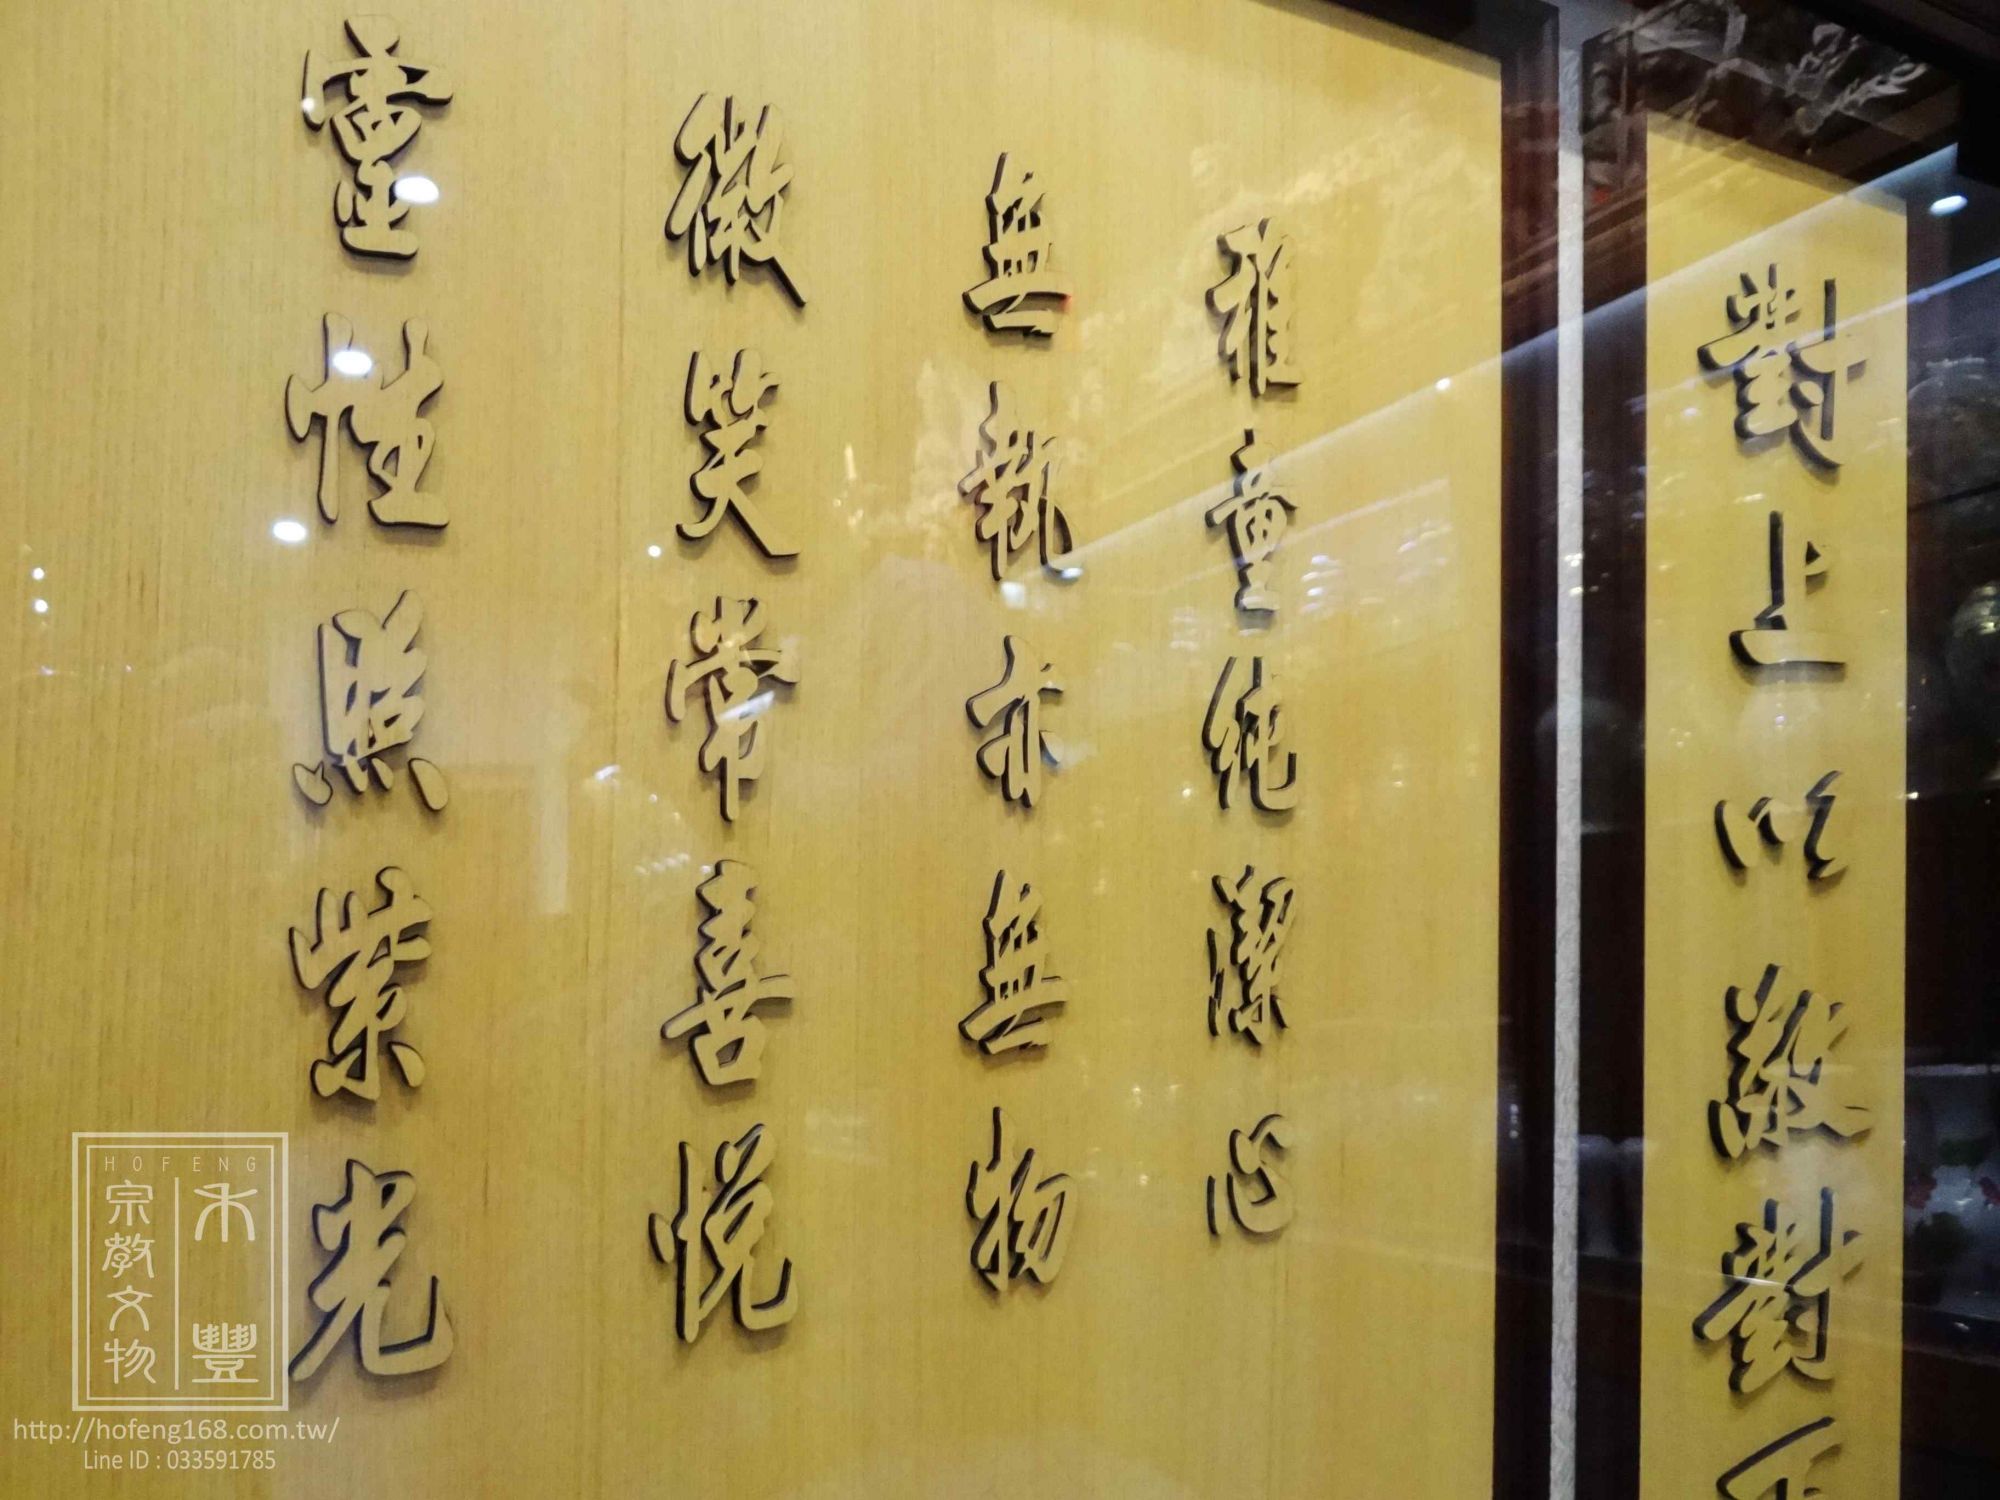 對上以敬對
稚童純潔心
無執亦無物
微笑常喜悅
靈性照紫光
HOFENG
禾豐
宗教文物
http://hofeng168.com.tw/
Line ID : 033591785